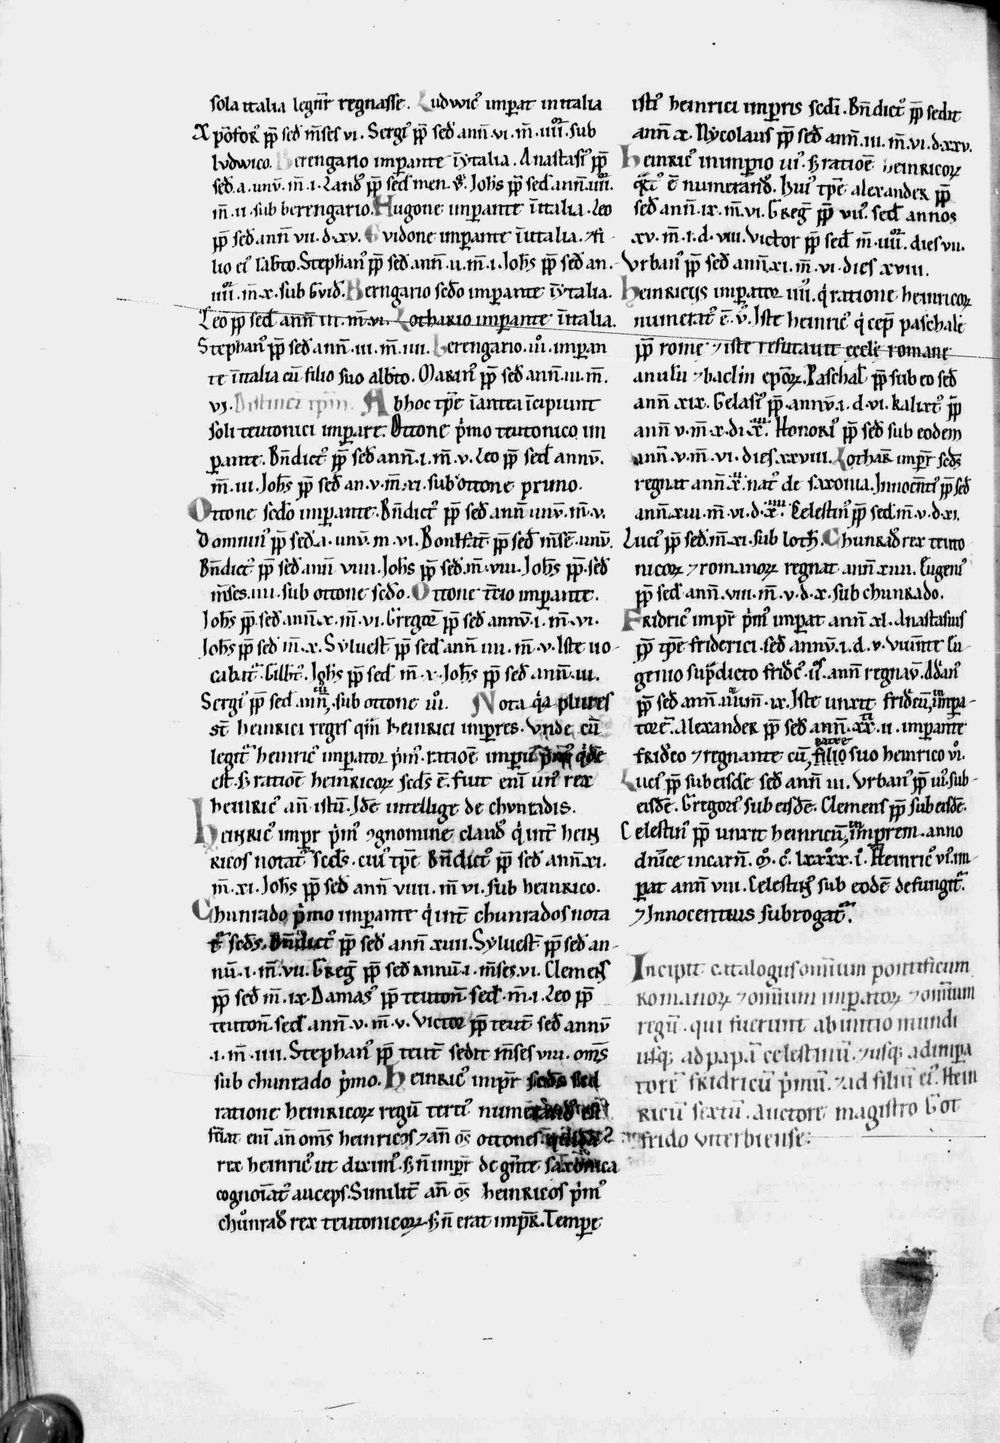 sola italia legnr̄ regnasse. Ludwicꝰ imꝑat in italia
Xp̄oforꝰ pp̄ sed̄ m̄ses vi. Sergiꝰ pp̄ sed̄ ann̄ .vi. m̄. iiii. sub
lvdwico. Berengario imꝑante ī ytalia. Anastasiꝰ pp̄
sed̄. a. unv̄. m̄. i. Land̄ pp̄ sed̄ men. Joh̄s pp̄ sed̄ ann̄. iiii.
m̄. ii. sub berengario. Hugone imꝑante ī italia. Leo
pp̄ sed̄ ann̄ vii. d. xv. Gvidone imꝑante ī italia. ⁊ fi-
lio eiꝰ lābto. Stephanꝰ pp̄ sed̄ ann̄. ii. m̄. i. Joh̄s pp̄ sed̄ an.
iiii. m̄. x. sub Gvid̄. Berngario sed̄o imꝑante ī ytalia.
Leo pp̄ sed̄ ann̄ iii. m̄. vi. Lothario imꝑante ī italia.
Stephanꝰ pp̄ sed̄ ann̄. iii. m̄. iiii. Berengario. iiii. imꝑan
te ī italia cū filio suo alb̄to. Marinꝰ pp̄ sed̄ ann̄. iii. m̄.
vi. Ab hoc tp̄e ī antea īcipiunt
soli teutonici imꝑare. Ottone p̄mo teutonico im
ꝑante. Bn̄dictꝰ pp̄ sed̄ ann̄. i. m̄. v. Leo pp̄ sed̄ annv̄.
m̄. iii. Joh̄s pp̄ sed̄ an. v. m̄. xi. sub ottone primo.
Ottone sed̄o imꝑante. Bn̄dictꝰ pp̄ sed̄ ann̄ unv̄. m̄. v.
Domnuſ pp̄ sed̄. a. unv̄. m. vi. Bonifat̄ pp̄ sed̄ m̄sē. unv̄.
Bn̄dictꝰ pp̄ sed̄ ann̄ viiii. Joh̄s pp̄ sed̄. m̄. viii. Joh̄s pp̄. sed̄
m̄ses. iiii. sub ottone sed̄o. Ottone t̄cio imꝑante.
Joh̄s pp̄ sed̄ ann̄. x. m̄. vi. Gregorꝰ pp̄ sed̄ annv̄. i. m̄. vi.
Joh̄s pp̄ sed̄ m̄. x. Sylvest̄ pp̄ sed̄ ann̄ iiii. m̄. v. Iste uo-
cabat̄. Gilb̄tꝰ. Joh̄s pp̄ sed̄ m̄. v. Joh̄s pp̄ sed̄ ann̄. iii.
Sergiꝰ pp̄ sed̄ ann̄. sub ottone iii. Nota qa plures
st̄ heinrici reges qm̄ heinrici imꝑres. Vnde cū
legit̄ heinricꝰ imꝑator p̄mꝰ. ratōe imꝑii
est. s; ratiōe heinricoꝝ sed̄s ē. fuit eni unꝰ rex
heinricꝰ an̄ istū. Idē intellige de chvnradis.
Heinricꝰ imꝑr p̄mꝰ ꝯgnomine claudꝰ q̇ int̄ hein
ricos notat̄ sed̄s. cuiꝰ tp̄e Bn̄dictꝰ pp̄ sed̄ ann̄. xi.
m̄. xi. Joh̄s pp̄ sed̄ ann̄ viiii. m̄ vi. sub heinrico.
Chunrado p̄mo imꝑante q̇ int̄ chunrados nota
sed̄s. Bn̄dictꝰ pp̄ sed̄ ann̄ xiii. Sylvest̄ pp̄ sed̄ an-
nū. i. m̄. vii. Greḡ pp̄ sed̄ annū. i. m̄ses. vi. Clemens
pp̄ sed̄ m̄. ix. Damasꝰ pp̄ teuton̄. sed̄. m̄. i. Leo pp̄
teuton̄. sed̄ ann̄. v. m̄. v. Victor pp̄ teut̄ sed̄ annv̄
.i. m̄. iiii. Stephanꝰ pp̄ teut̄ sedit m̄ses viii. om̄s
sub chunrado p̄mo. Heinricꝰ imꝑr sed̄s sed
ratione heinricoꝝ regū terciꝰ
fūat eni an̄ om̄s heinricos ⁊ an̄ os̄ ottones
rex heinricꝰ ut diximꝰ. s; n̄ imꝑr de gn̄te saxonica
cognoīatꝰ auceps. Similit̄ an̄ os̄ heinricos p̄mꝰ
chūrad̄ rex teutonicoꝝ. s; n̄ erat imꝑr. Tempore
istiꝰ heinrici imꝑris sed̄i. Bn̄dictꝰ pp̄ sedit
ann̄ x. Nycolaus pp̄ sed̄ ann̄. iii. m̄. vi. d. xxv.
Heinricꝰ in imꝑio iiiꝰ. s; ratiōe heinricoꝝ
ē numerand̄. Huiꝰ tp̄e alexander pp̄
sed̄ ann̄. ix. m̄. vi. Greḡ pp̄ viiꝰ. sed̄ annos
xv. m̄. i. d. viii. Victor pp̄ sed̄ m̄. iiii. dies vii.
Vrbanꝰ pp̄ sed̄ ann̄. xi. m̄. vi. dies xviii.
Heinricus imꝑator iiii. q̇ ratione heinricoꝝ
numeratꝰ ē. v̄. Iste heinricꝰ q̇ cep̄ paschalē
pp̄ rome ⁊ iste refutauit ecclē romane
anulū ⁊ baclin ep̄oꝝ. Paschal̄ pp̄ sub eo sed̄
ann̄ xix. Gelasiꝰ pp̄. annv̄. i. d. vi. Kalixtꝰ pp̄
ann̄ v. m̄. x. d. Honoriꝰ pp̄ sed̄ sub eodem
ann̄. v. m̄. vi. dies xxviii. Lothar imꝑr sed̄s
regnat ann̄. natꝰ de saxonia. Innocentꝰ pp̄ sed̄
ann̄. xiii. m̄. vi. d. Celestinꝰ pp̄ sed̄. m̄. v. d. xi.
Luciꝰ pp̄ sed̄. m̄. xi. sub loth̄. Chunrad̄ rex teuto
nicoꝝ ⁊ romanoꝝ regnat. ann̄. xiiii. Eugeniꝰ
pp̄ sed̄ ann̄. viii. m̄. v. d. x. sub chunrado.
Fridericꝰ imꝑr p̄mꝰ imꝑat ann̄ xl. Anastasius
pp̄ tp̄e friderici. sed̄ annv̄. i. d. v. viuēnte Eu-
genio sup̄dicto frid̄cꝰ. ii. ann̄ regnav̄. Adanꝰ
pp̄ sed̄ ann̄. ix. Iste unxit frid̄cū, imꝑa-
torē. Alexander pp̄ sed̄ ann̄. xx. ii. imꝑante
frid̄co ⁊ regnante cū filio suo heinrico vi.
Luciꝰ pp̄ sub eisdē sed̄ ann̄ iii. Vrbanꝰ pp̄ iiꝰ. sub-
eisdē. Gregoriꝰ sub eisdē. Clemens pp̄ sub eisdē.
Celestinꝰ pp̄ unxit heinricū, imꝑrem. anno
dn̄ice incarn̄. m̊. c̊. lxxxx. i̊. Heinricꝰ viꝰ. im-
ꝑat ann̄ viii. Celestinꝰ sub eodē defungit̄.
⁊ Innocentius subrogat̄.
Incipit catalogus omīum pontificum
romanoꝝ ⁊ omīum imꝑatoꝝ ⁊ omīum
regū. qui fuerunt ab initio mundi
usq; ad papā celestinū. ⁊ usq; ad imꝑa
torē fridricū p̄mū. ⁊ ad filiū eiꝰ. Hein
ricū sextū. Auctore magistro Got
frido viterbiense: